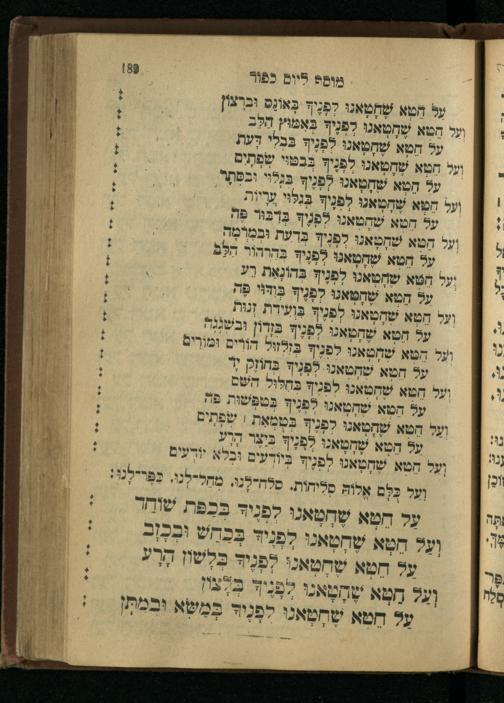 189
מוסף ליום כפור
על חטא שֶׁחָטָאנוּ לְפָנֶיךָ בְּאוֹנֶס וּבְרָצוֹן
וְעַל חֵטְא שֶׁחָטָאנוּ לְפָנֶיךָ בְּאִמּוּץ הַלֵּב
עַל חֵטְא שֶׁחָטָאנוּ לְפָנֶיךָ בִּבְלִי דָעַת
וְעַל חֵטְא שֶׁחָטָאנוּ לְפָנֶיךָ בְּבִטּוּי שְׂפָתָיִם
עַל חֵטְא שֶׁחָטָאנוּ לְפָנֶיךָ בְּגָלוּי וּבַסָּתֶר
וְעַל חֵטְא שֶׁחָטָאנוּ לְפָנֶיךָ בְּגִלּוּי עֲרָיוֹת
עַל חֵטְא שֶׁחָטָאנוּ לְפָנֶיךָ בְּדִבּוּר פֶּה
וְעַל חֵטְא שֶׁחָטָאנוּ לְפָנֶיךָ בְּדַעַת וּבְמִרְמָה
עַל חֵטְא שֶׁחָטָאנוּ לְפָנֶיךָ בְּהִרְהוֹר הַלֵּב
וְעַל חֵטְא שֶׁחָטָאנוּ לְפָנֶיךָ בְּהוֹנָאַת רֵעַ
עַל חֵטְא שֶׁחָטָאנוּ לְפָנֶיךָ בְּוִדּוּי פֶּה
וְעַל חֵטְא שֶׁחָטָאנוּ לְפָנֶיךָ בִּוְעִידַת זְנוּת
עַל חֵטְא שֶׁחָטָאנוּ לְפָנֶיךָ בְּזָדוֹן וּבִשְׁגָגָה
וְעַל חֵטְא שֶׁחָטָאנוּ לְפָנֶיךָ בְּזִלְזוּל הוֹרִים וּמוֹרִים
עַל חֵטְא שֶׁחָטָאנוּ לְפָנֶיךָ בְּחוֹזֶק יָד
וְעַל חֵטְא שֶׁחָטָאנוּ לְפָנֶיךָ בְּחִלּוּל הַשֵּׁם
עַל חֵטְא שֶׁחָטָאנוּ לְפָנֶיךָ בְּטִפְשׁוּת פֶּה
וְעַל חֵטְא שֶׁחָטָאנוּ לְפָנֶיךָ בְּטֻמְאַת שְׂפָתָיִם
עַל חֵטְא שֶׁחָטָאנוּ לְפָנֶיךָ בְּיֵצֶר הָרָע
וְעַל חֵטְא שֶׁחָטָאנוּ לְפָנֶיךָ בְּיוֹדְעִים וּבְלֹא יוֹדְעִים
וְעַל כֻּלָּם אֱלוֹהַּ סְלִיחוֹת. סְלַח־לָנוּ. מְחַל־לָנוּ. כַּפֶּר־לָנוּ:
עַל חֵטְא שֶׁחָטָאנוּ לְפָנֶיךָ בְּכַפַּת שׁוֹחַד
וְעַל חֵטְא שֶׁחָטָאנוּ לְפָנֶיךָ בְּכַחַשׁ וּבְכָזָב
עַל חֵטְא שֶׁחָטָאנוּ לְפָנֶיךָ בְּלָשׁוֹן הָרָע
וְעַל חֵטְא שֶׁחָטָאנוּ לְפָנֶיךָ בְּלָצוֹן
עַל חֵטְא שֶׁחָטָאנוּ לְפָנֶיךָ בְּמַשָּׂא וּבְמַתָּן